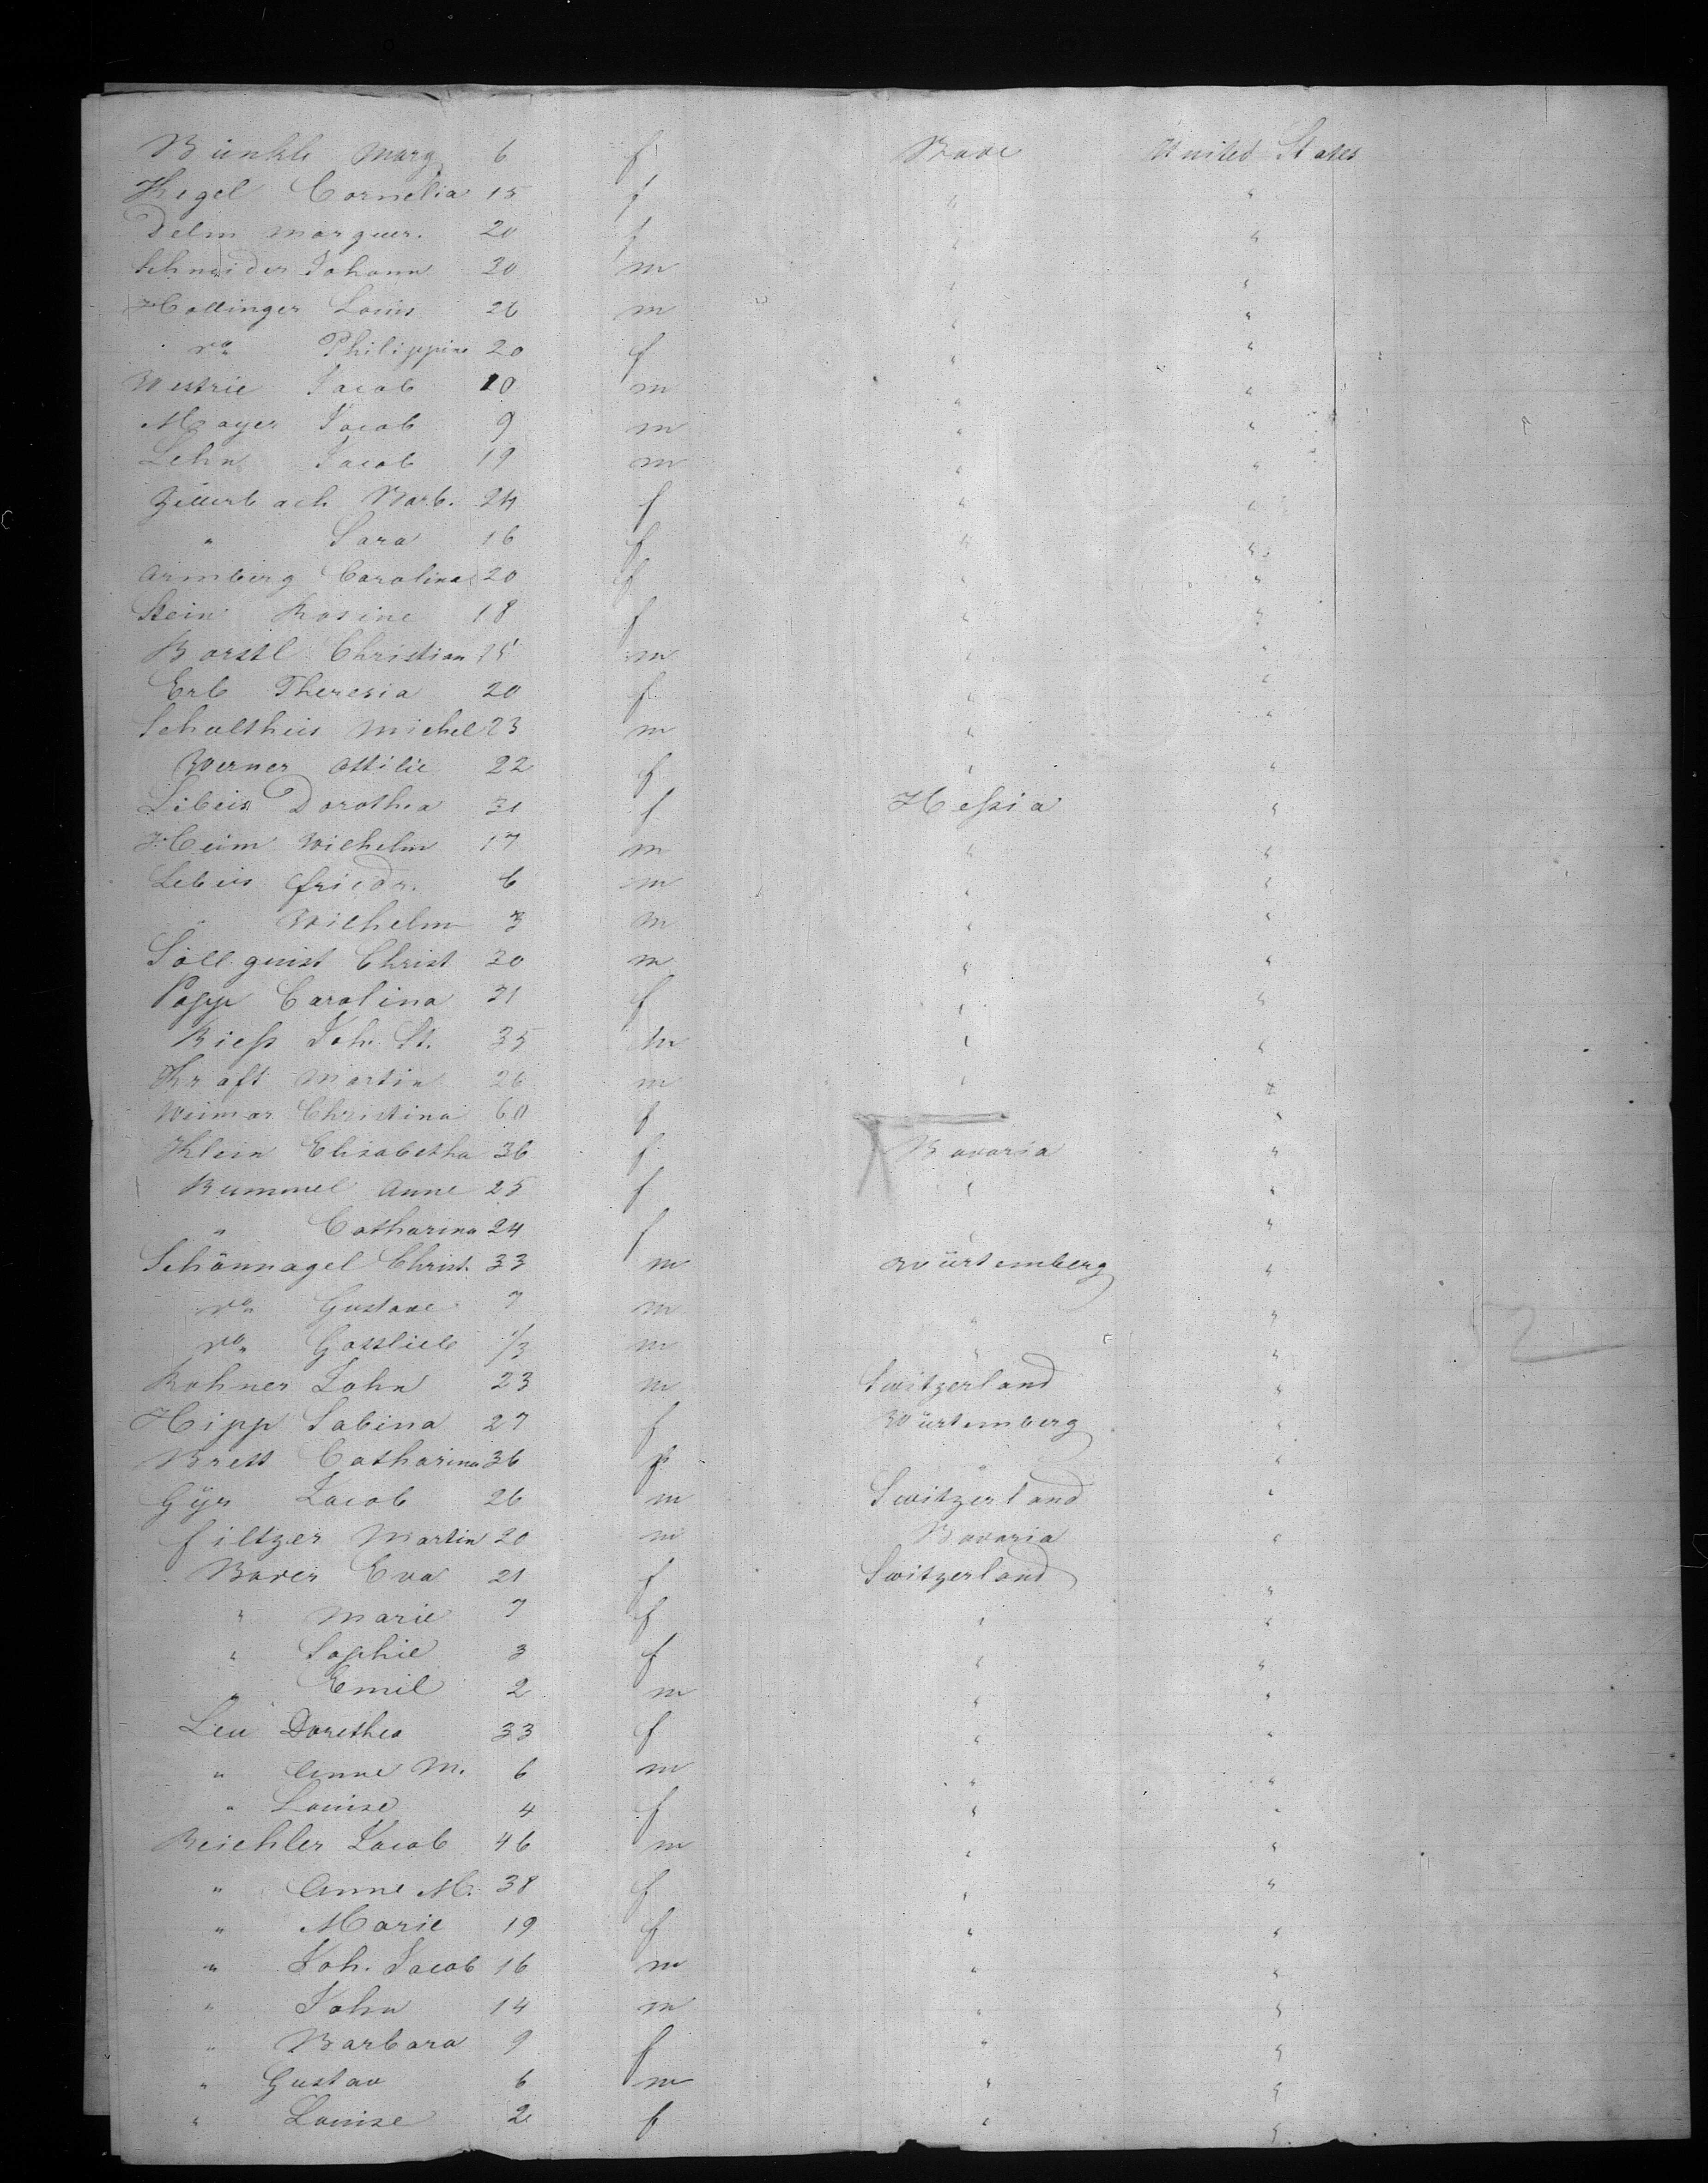 Bünkle Marg 6 f Bade United States
Hegel Cornelia 15 f " "
Delm Marguer. 20 f " "
Schneider Johann 30 m " "
Hollinger Louis 26 m " "
do. Philippine 20 f " "
Westrie Jacob 10 m " "
Mayer Jacob 9 m " "
Lehn Jacob 19 m " "
Zillerbach Barb. 24 f " "
" Sara 16 f " "
Armberg Carolina 20 f " "
Stein Rosine 18 f " "
Borstl Christian 25 m " "
Erb Theresia 20 f " "
Schulthies Michel 23 m " "
Werner Ottilie 22 f " "
Libeis Dorothea 31 f Heßia "
Heim Wilhelm 17 m " "
Lebeis Friedr. 6 m " "
" Wilhelm 3 m " "
Söllquist Christ 30 m " "
Popp Carolina 31 f " "
Rieß Joh. St. 35 m " "
Kraft Martin 26 m " "
Weimar Christina 60 f "
Klein Elisabetha 36 f Bavaria "
Rummel Anne 25 f " "
" Catharina 24 f " "
Schönnagel Christ. 33 m Würtemberg "
do. Gustave 7 m " "
do. Gottlieb 1/3 m " "
Rohner John 23 m Switzerland "
Hipp Sabina 27 f Würtemberg "
Brett Catharina 36 f " "
Gÿr Jacob 26 m Switzerland "
Filtzer Martin 20 m Bavaria "
Bader Eva 21 f Switzerland "
" Marie 7 f " "
" Sophie 3 f " "
" Emil 2 m " "
Leu Dorethea 33 f " "
" Anne M. 6 m " "
" Louise 4 f " "
Beichler Jacob 46 m " "
" Anne M. 38 f " "
" Marie 19 f " "
" Joh. Jacob 16 m " "
" John 14 m " "
" Barbara 9 f " "
" Gustav 6 m " "
" Louise 2 f " "